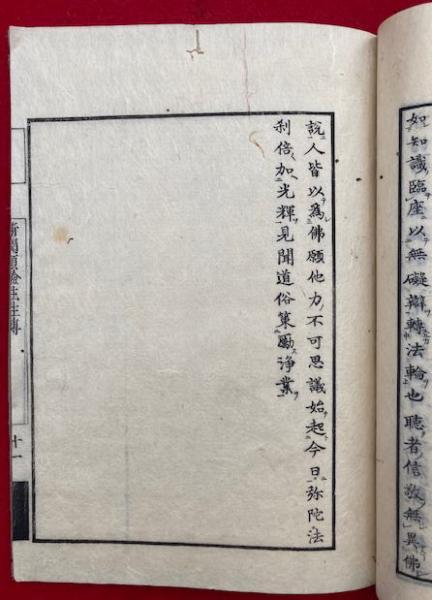 如知識臨座以無礙辯轉法輪也聽者信敬無異佛
説人皆以爲佛願他力不可思議始起今日弥陀法
利倍加光輝見聞道俗策勵淨業
新聞顯驗往生傳
十一